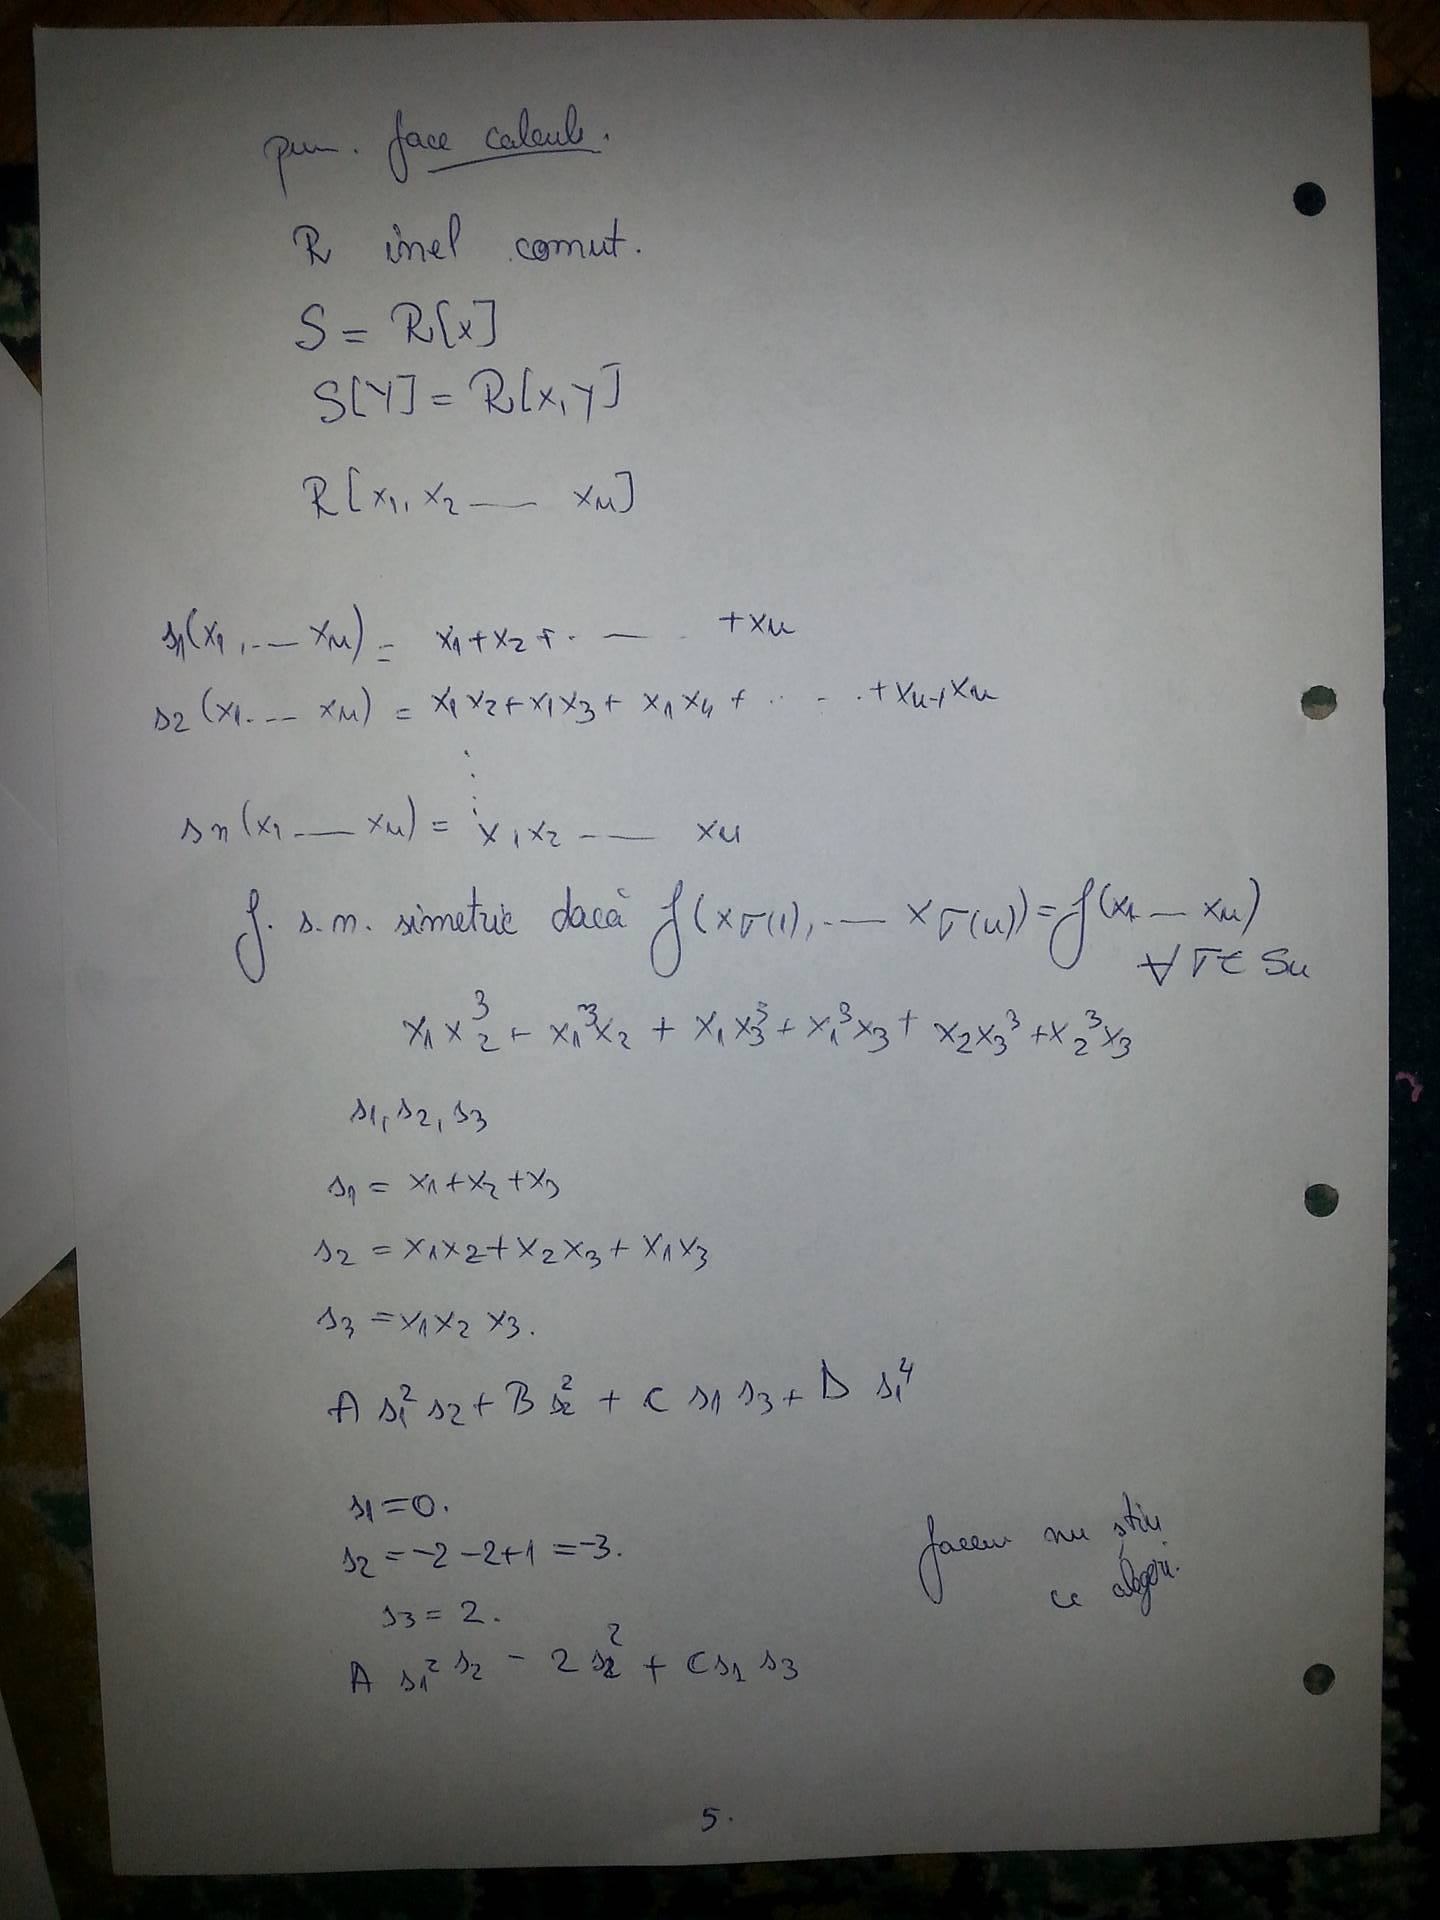 pun. face calcule.
R inel comut.
S = R[x]
S[Y] = R[x,y]
R[x1, x2 — xn]
s1(x1, ... — xn) = x1 + x2 + . — . + xn
s2(x1 ... — xn) = x1x2 + x1x3 + x1x4 + . . - . . + xn-1 xn
⋮
sn(x1 — xn) = x1x2 — xn
f. s.n. simetric dacă f(xσ(1), ... — xσ(n)) = f(x1 — xn)
∀ σ ∈ Sn
x1x2³ + x1³x2 + x1x3³ + x1³x3 + x2x3³ + x2³x3
s1, s2, s3
s1 = x1 + x2 + x3
s2 = x1x2 + x2x3 + x1x3
s3 = x1x2x3.
A s1² s2 + B s2² + C s1 s3 + D s1⁴
s1 = 0.
s2 = -2 -2 + 1 = -3.
s3 = 2.
facem nu știu
ce alegeri.
A s1² s2 - 2 s2² + C s1 s3
5.